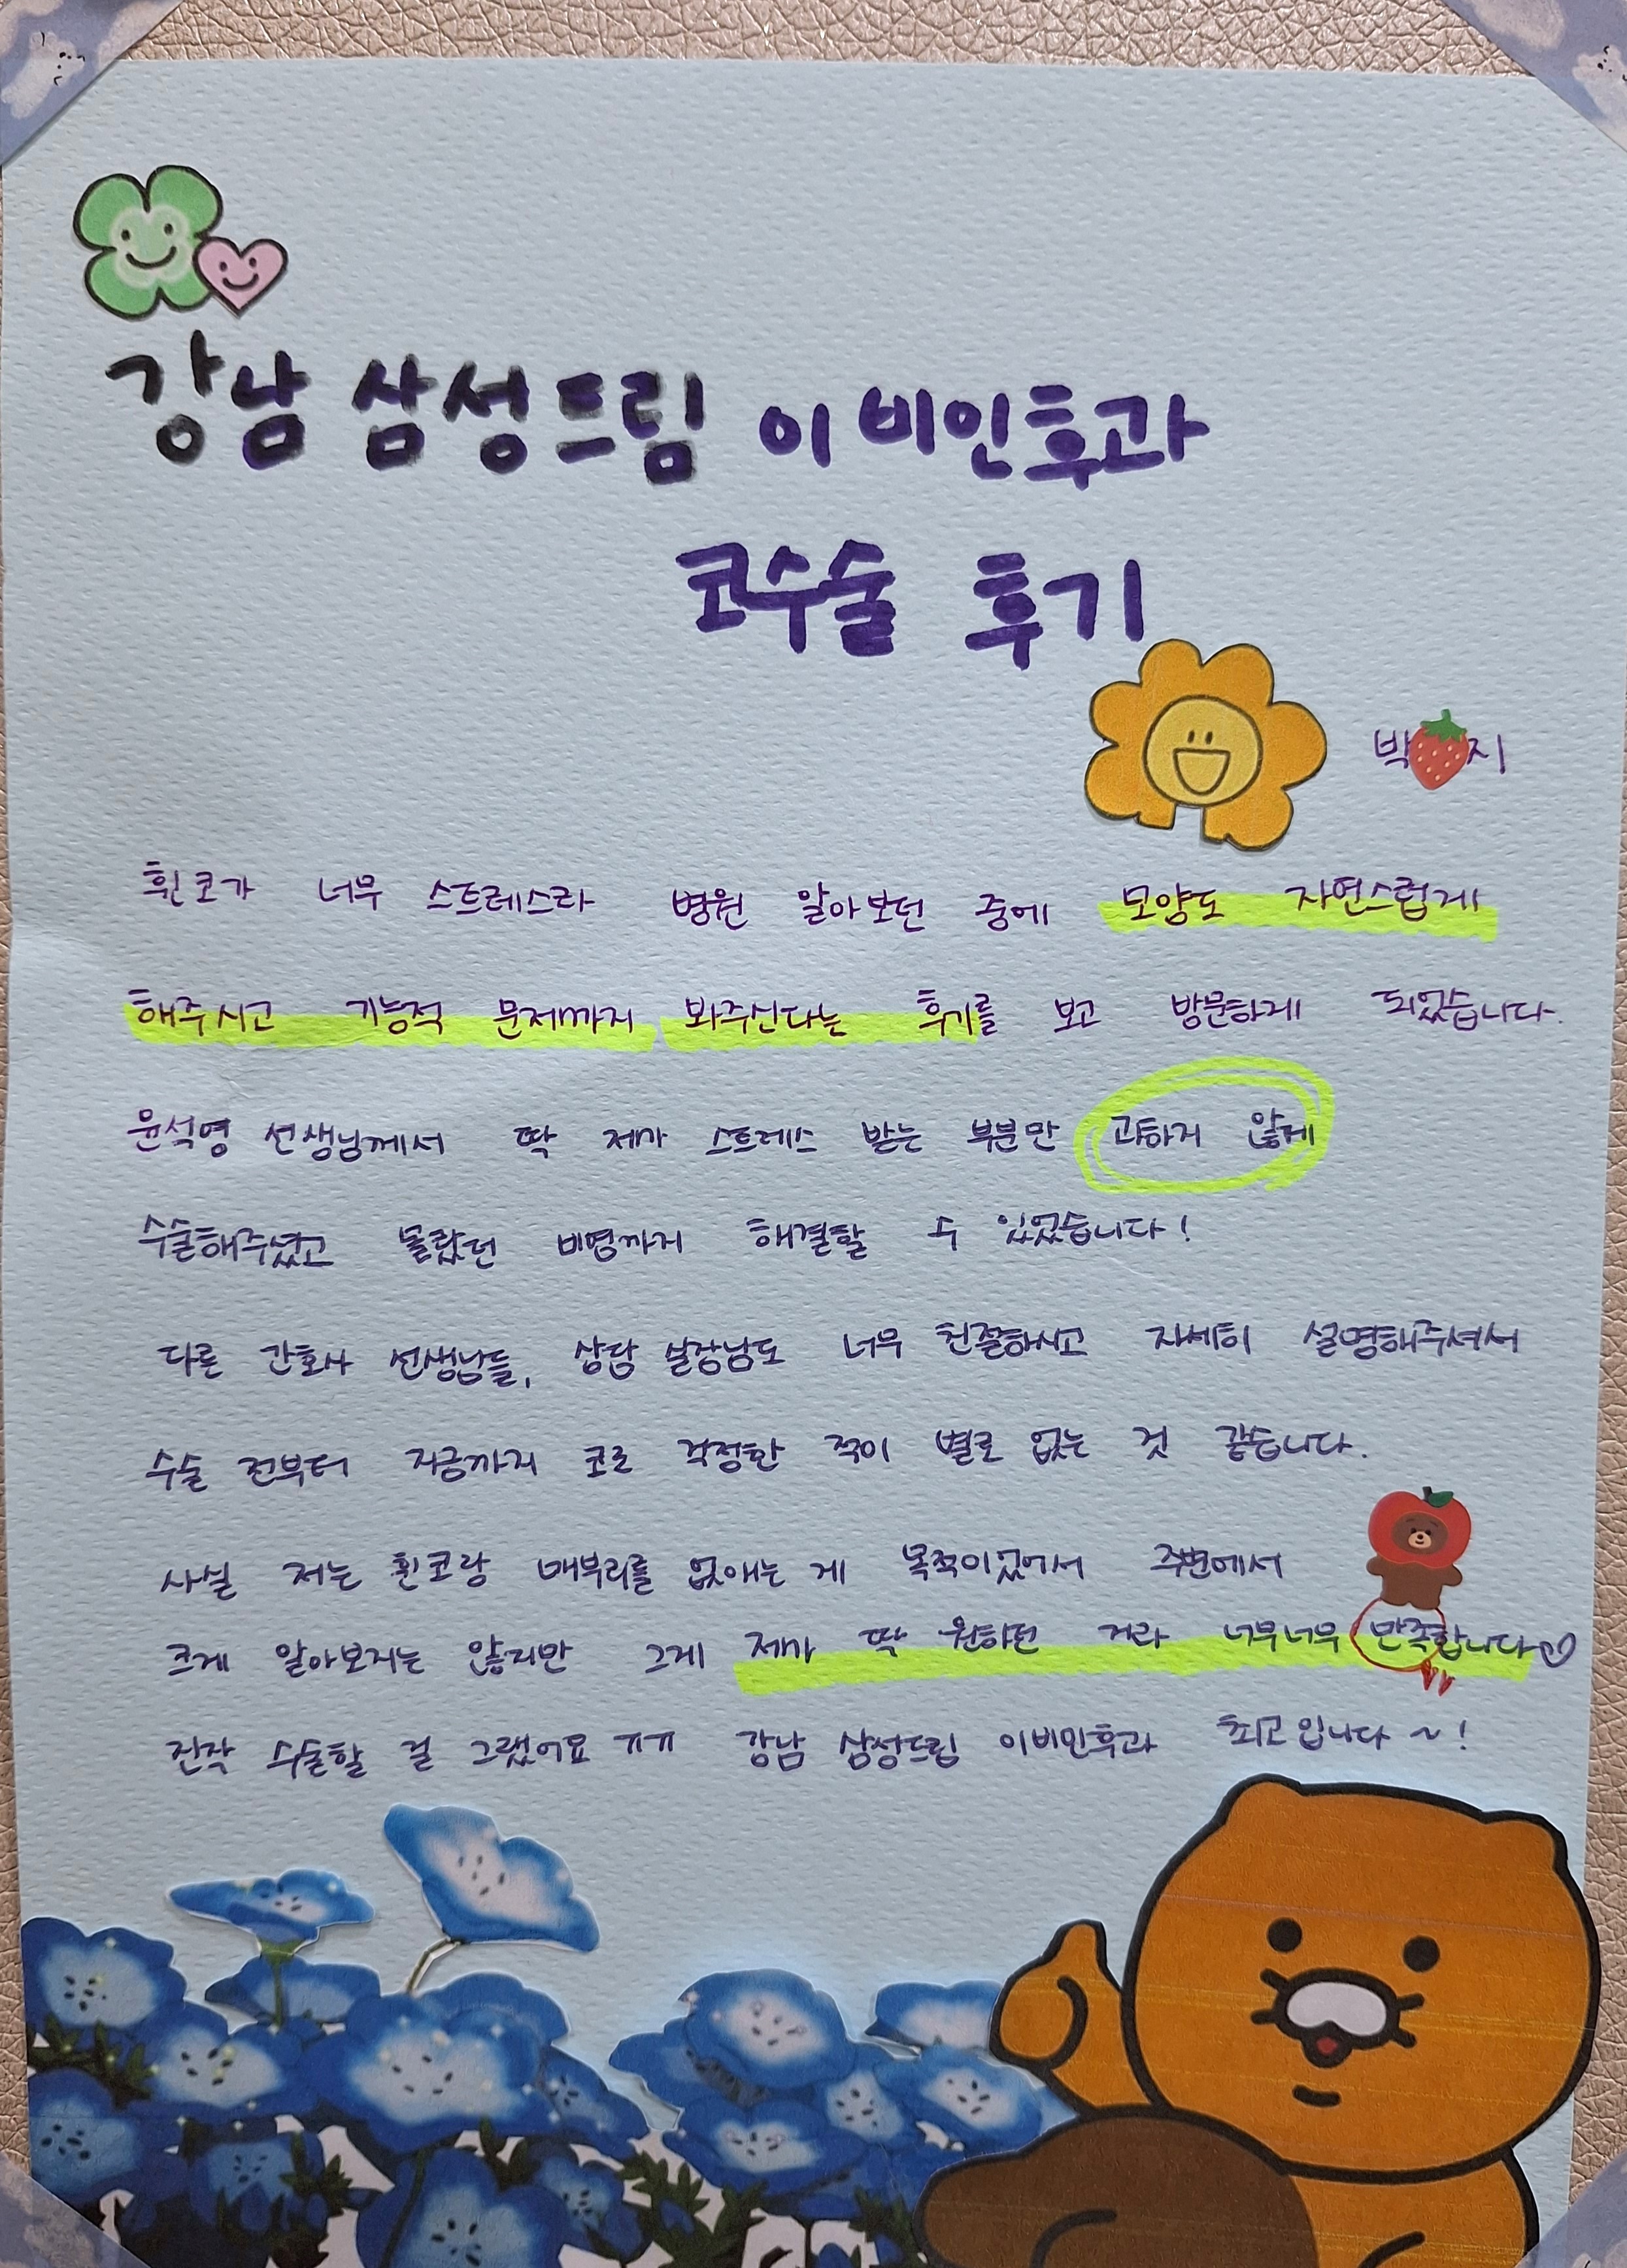 강남 삼성드림 이비인후과
코수술 후기
박 지
휜코가 너무 스트레스라 병원 알아보던 중에 모양도 자연스럽게
해주시고 기능적 문제까지 봐주신다는 후기를 보고 방문하게 되었습니다.
윤석영 선생님께서 딱 제가 스트레스 받는 부분만 과하지 않게
수술해주셨고 몰랐던 비염까지 해결할 수 있었습니다!
다른 간호사 선생님들, 상담 실장님도 너무 친절하시고 자세히 설명해주셔서
수술 전부터 지금까지 코로 걱정한 적이 별로 없는 것 같습니다.
사실 저는 휜코랑 매부리를 없애는 게 목적이었어서 주변에서
크게 알아보지는 않지만 그게 제가 딱 원하던 거라 너무너무 만족합니다
진작 수술할 걸 그랬어요 ㅠㅠ 강남 삼성드림 이비인후과 최고입니다~!